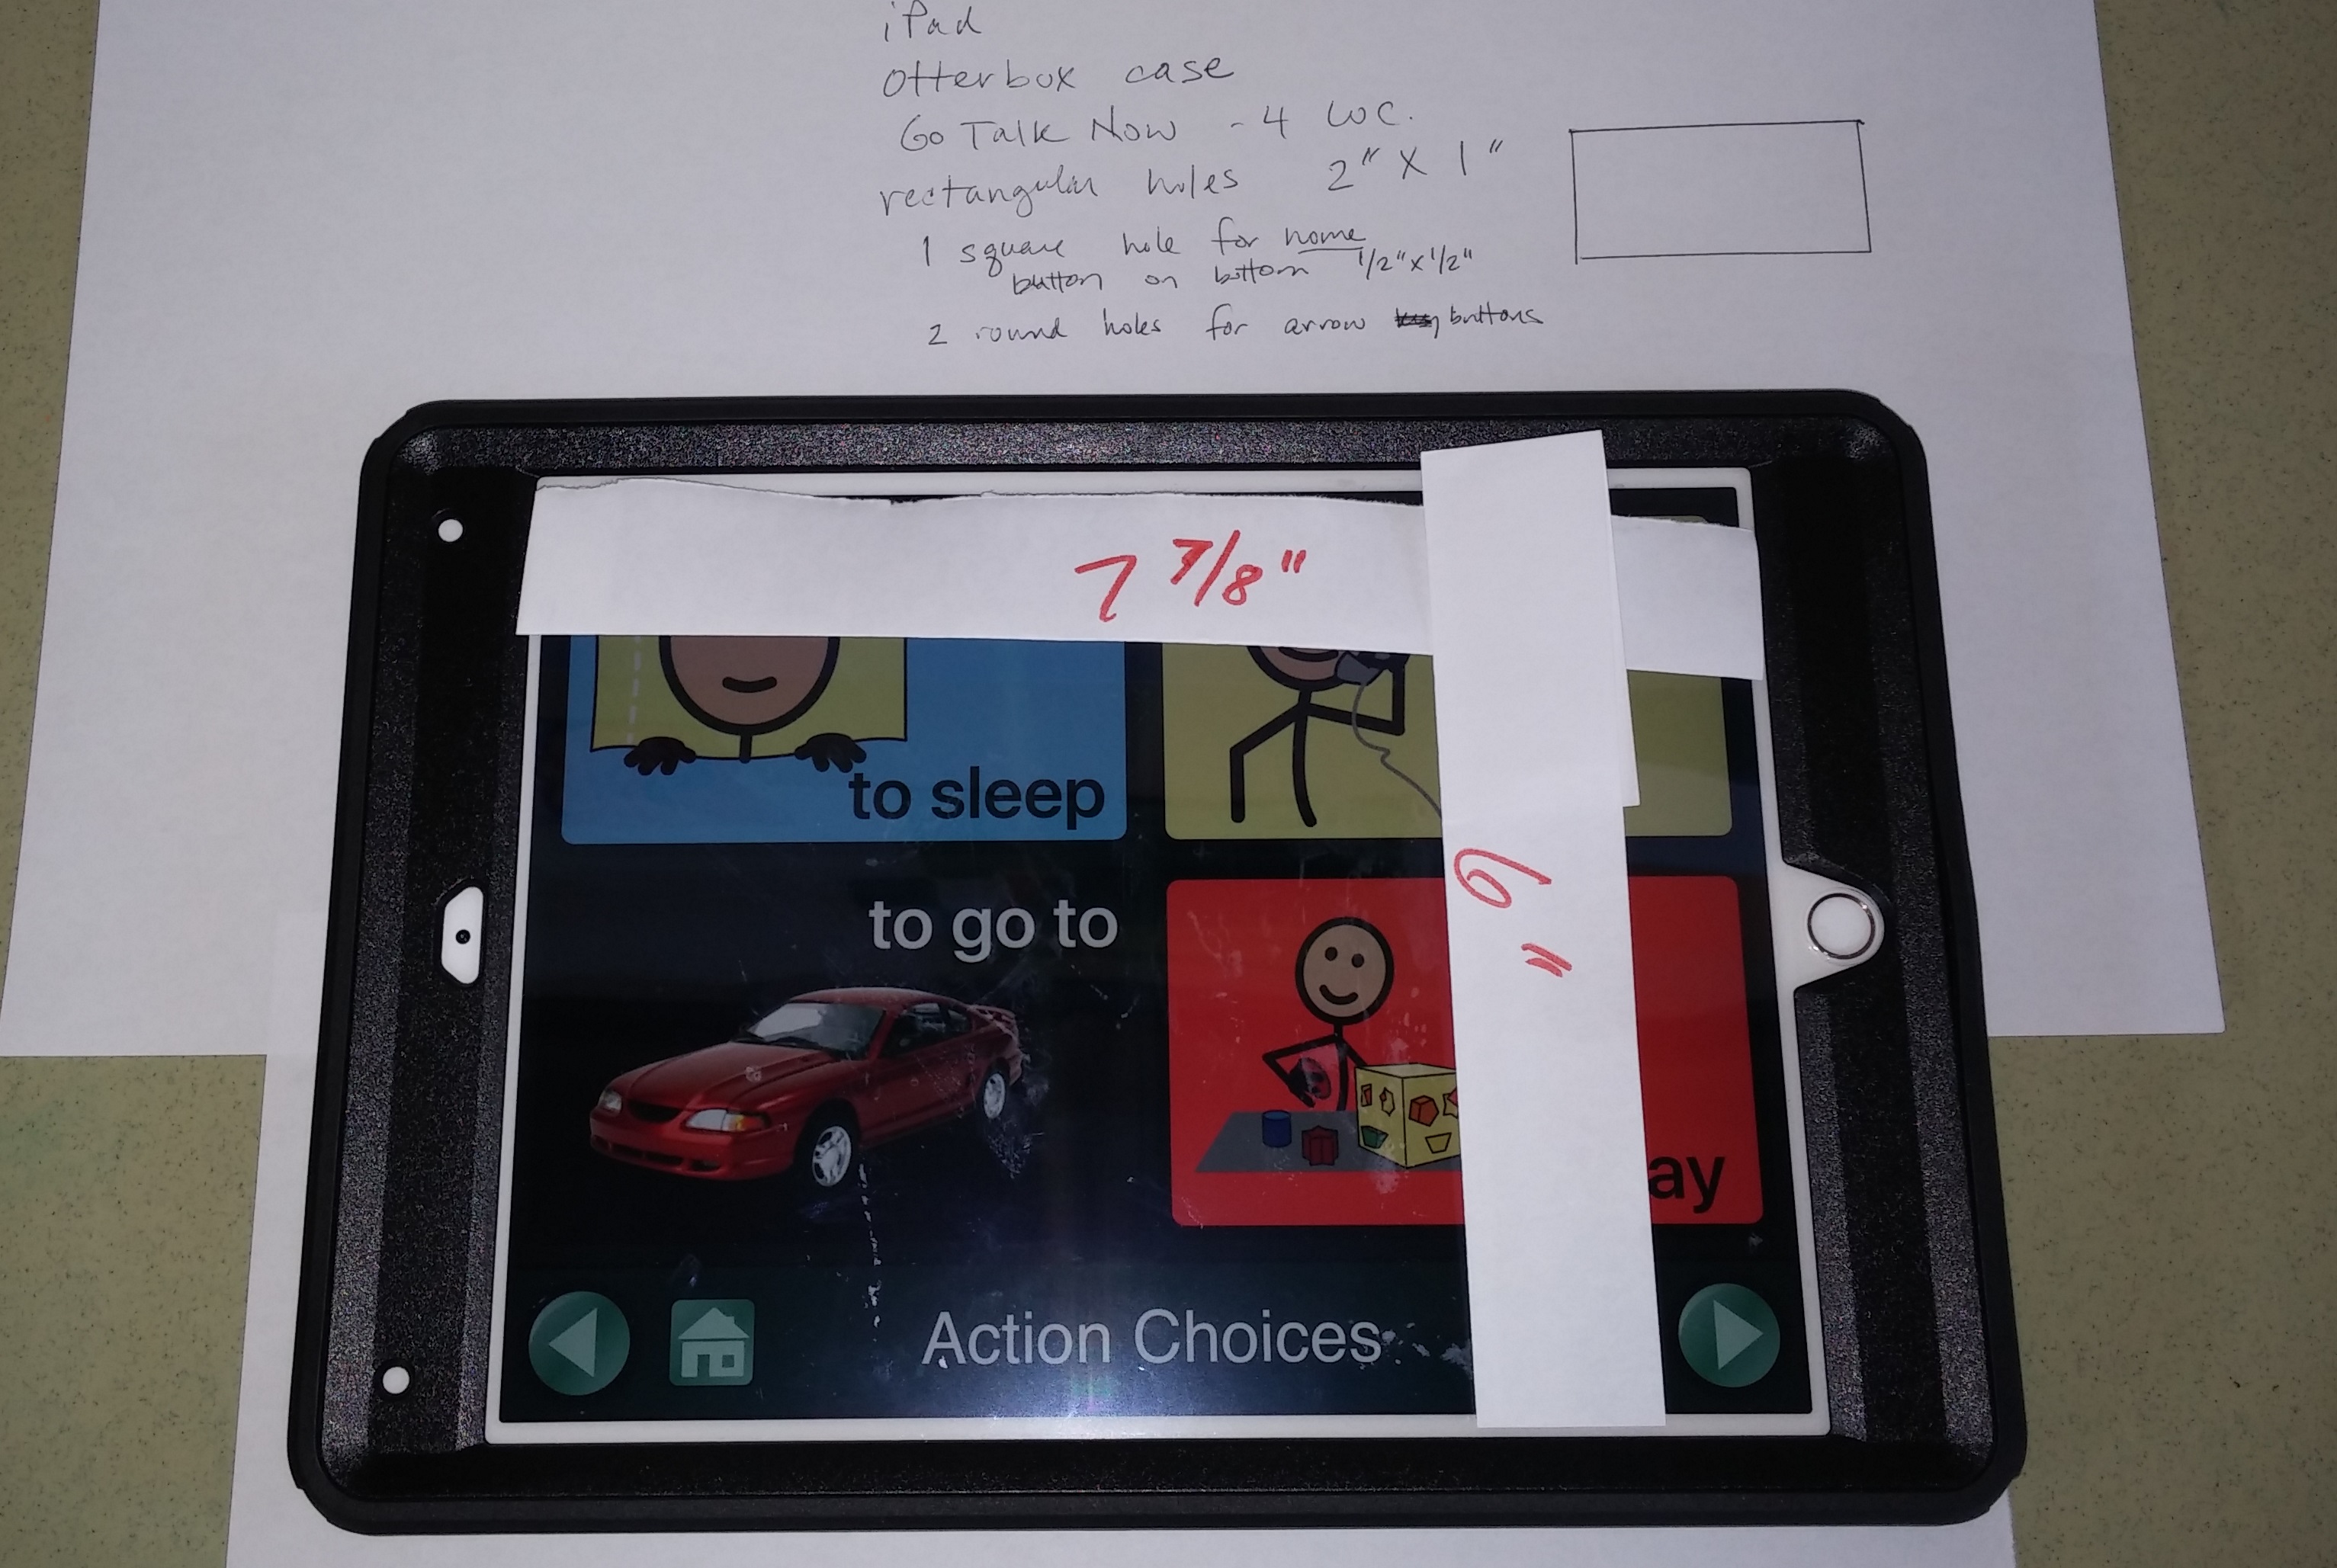 iPad
Otterbox case
Go Talk Now - 4 LOC.
rectangular holes 2" X 1"
1 square hole for home
button on bottom 1/2" x 1/2"
2 round holes for arrow buttons
7 7/8"
6"
to sleep
to go to
ay
Action Choices